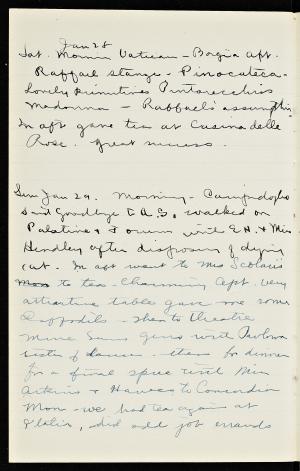 Jan 28
Sat. Morning Vatican - Borgia Apt.
Raffael stanze - Pinocateca -
Lovely primitives Pintorecchio's
Madonna - Raffael's assumption
In aft gave tea at Cusina delle
Rose. Great success.
Sun Jan 29. Morning - Campidoglio
said goodbye to A.S., walked on
Palatine & Forum with E.H. & Miss
Hendley after disposing of dying
cat. In aft went to Miss Scolari's
to tea - Charming Apt. very
attractive table, gave me some
Daffodils - then to theatre
Mme
with Pavlova
sister of dance - then for dinner
for a final spree with Miss
Atkins & Hawes to Concordia
Mon - we had tea again at
, did odd job errands